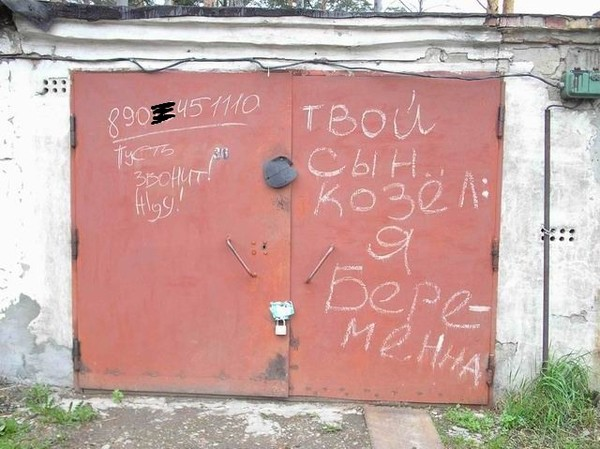 890 451110
Пусть
звонит!
Жду!
38
Твой
сын..
козёл:
Я
Бере-
менна